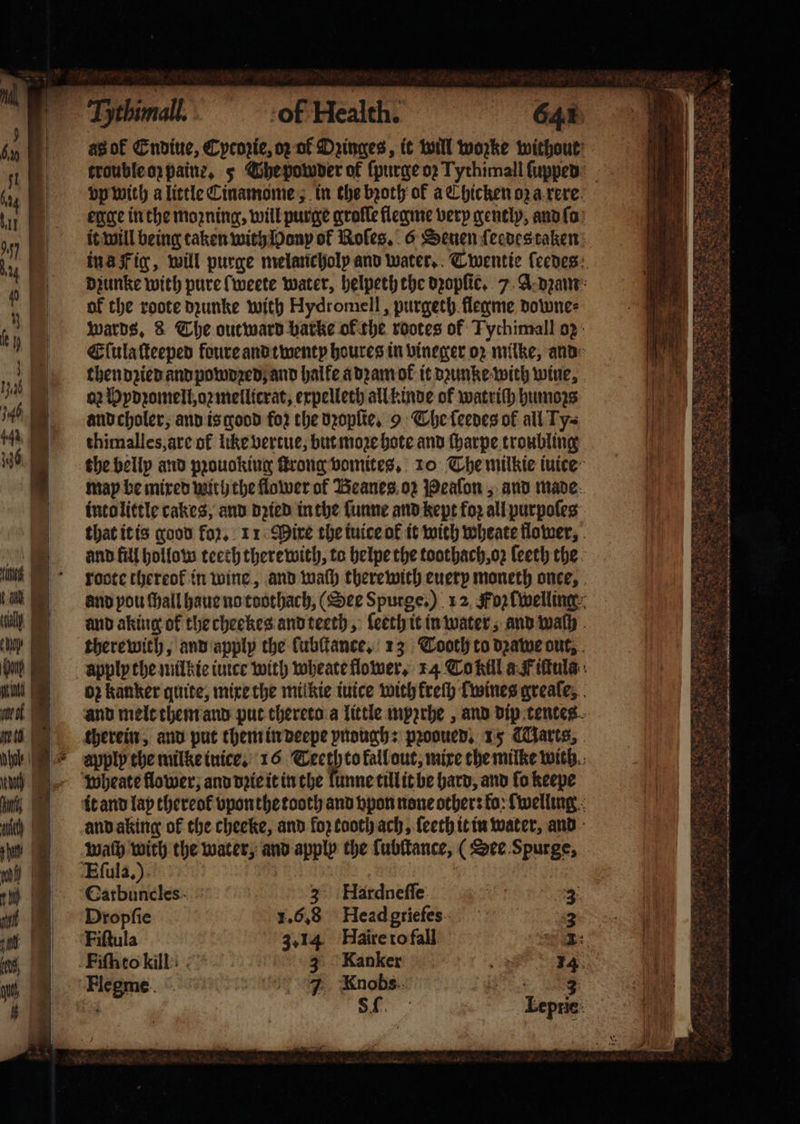 Tythimall. of Health. 641
as of Endiue, Cycorie, or of Dringes, it will worke without
trouble or paine. 5 The powder of spurge or Tythimall supped
vp with a little Cinamome, in the broth of a Chicken or a rere
egge in the morning, will purge grosse flegme very gently, and so
it will being taken with Hony of Roses. 6 Seuen seedes taken
in a Fig, will purge melancholy and water. Twentie seedes
drunke with pure sweete water, helpeth the dropsie. 7 A dram
of the roote drunke with Hydromell, purgeth flegme downe-
wards. 8 The outward barke of the rootes of Tythimall or
Esula steeped foure and twenty houres in vineger or milke, and
then dried and powdred, and halfe a dram of it drunke with wine,
or Hydromell, or mellicrat, expelleth all kinde of watrish humors
and choler, and is good for the dropsie. 9 The seedes of all Ty-
thimalles, are of like vertue, but more hote and sharpe troubling
the belly and prouoking strong vomites. 10 The milkie iuice
may be mixed with the flower of Beanes or Peason, and made
into little cakes, and dried in the sunne and kept for all purposes
that it is good for. 11 Mixe the iuice of it with wheate flower,
and fill hollow teeth therewith, to helpe the toothach, or seeth the
roote thereof in wine, and wash therewith euery moneth once,
and you shall haue no toothach, (See Spurge.) 12 For swelling
and aking of the cheekes and teeth, seeth it in water, and wash
therewith, and apply the substance. 13 Tooth to drawe out,
apply the milkie iuice with wheate flower. 14 To kill a Fistula
or kanker quite, mixe the milkie iuice with fresh swines grease,
and melt them and put thereto a little myrrhe, and dip tentes
therein, and put them in deepe ynough: prooued. 15 Warts,
apply the milke iuice. 16 Teeth to fall out, mixe the milke with
wheate flower, and drie it in the sunne till it be hard, and so keepe
it and lay thereof vpon the tooth and vpon none other: for swelling
and aking of the cheeke, and for tooth ach, seeth it in water, and
wash with the water, and apply the substance, (See Spurge,
Esula.)
Carbuncles 3 Hardnesse 3
Dropsie 1.6,8 Head griefes 3
Fistula 3,14 Haire to fall 1
Fish to kill 3 Kanker 14
Flegme 7 Knobs 3
Sf. Leprie